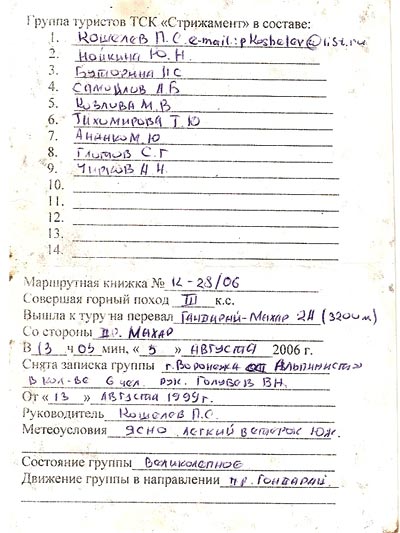 Группа туристов ТСК «Стрижамент» в составе:
1. Кошелев П.С. e-mail.: pkoshelev@list.ru
2. Нойкина Ю.Н.
3. Буторина И С
4. Самойлов А.Б
5. Козлова М.В
6. Тихомирова Т.Ю
7. Ананко М.Ю
8. Глотов С.Г
9. Чирков А.Н.
10.
11.
12.
13.
14.
Маршрутная книжка № К-28/06
Совершая горный поход III к.с.
Вышла к туру на перевал Гандарай-Махар 2А (3200м)
Со стороны др. Махар
В 13 ч 05 мин, « 5 » августа 2006 г.
Снята записка группы г. Воронежа Альпинистов
в кол-ве 6 чел. рук. Голубев В.Н.
От « 13 » августа 1999 г.
Руководитель Кошелев П.С.
Метеоусловия ясно легкий ветерок Юж.
Состояние группы великолепное
Движение группы в направлении пр. Гондарай.